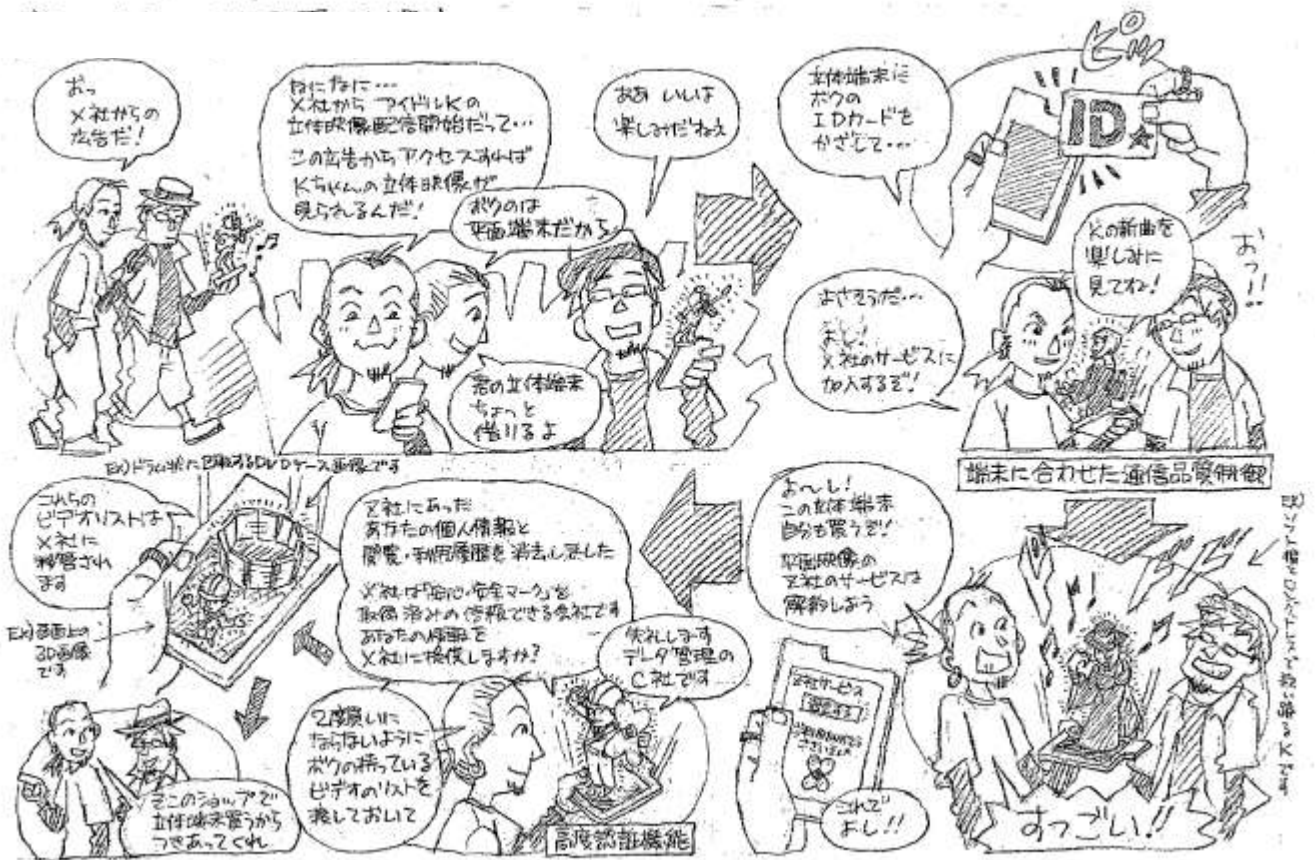 おっ
X社からの
広告だ!
なになに…
X社から アイドルKの
立体映像配信開始だって…
この広告からアクセスすれば
Kちゃんの立体映像が
見られるんだ!
ボクのは
平面端末だから
君の立体端末
ちょっと
借りるよ
ああ いいよ
楽しみだねえ
立体端末に
ボクの
IDカードを
かざして…
ピッ
ID
Kの新曲を
楽しみに
見てね!
おっ!!
よさそうだ…
よし!
X社のサービスに
加入するぞ!
端末に合わせた通信品質制御
すっごい!!
よ〜し!
この立体端末
自分も買うぞ!
平面映像の
Z社のサービスは
解約しよう
Z社サービス
これで
よし!!
失礼しまーす
データ管理の
C社です
Z社にあった
あなたの個人情報と
閲覧・利用履歴を消去しました
X社は「安心・安全マーク」を
取得済みの信頼できる会社です
あなたの情報を
X社に提供しますか?
2度買いに
ならないように
ボクの持っている
ビデオのリストを
渡しておいて
高度認証機能
EX)ドラム状に回転するDVDケース画像です
これらの
ビデオリストは
X社に
移管され
ます
EX)画面上の
3D画像
です
そこのショップで
立体端末買うから
つきあってくれ